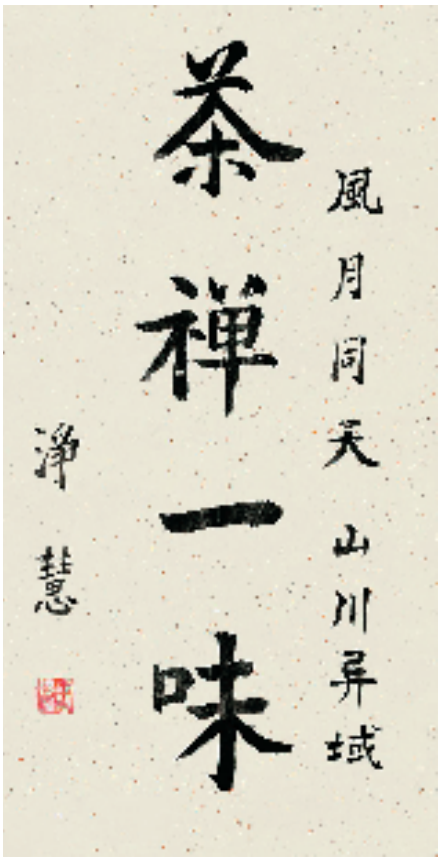 風月同天山川异域
茶禅一味
净慧